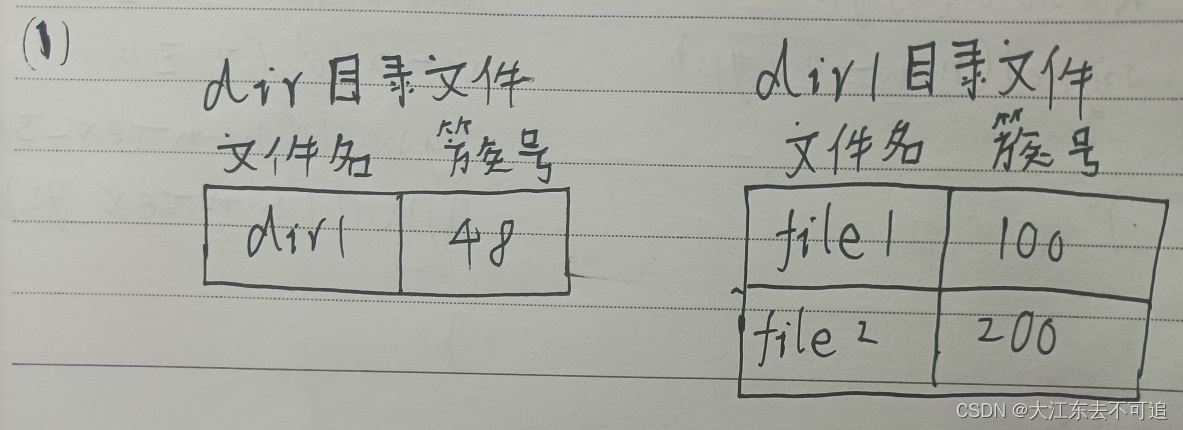 (1)
dir目录文件 dir1目录文件
文件名 簇号 文件名 簇号
dir1 48 file1 100
file2 200
CSDN @大江东去不可追